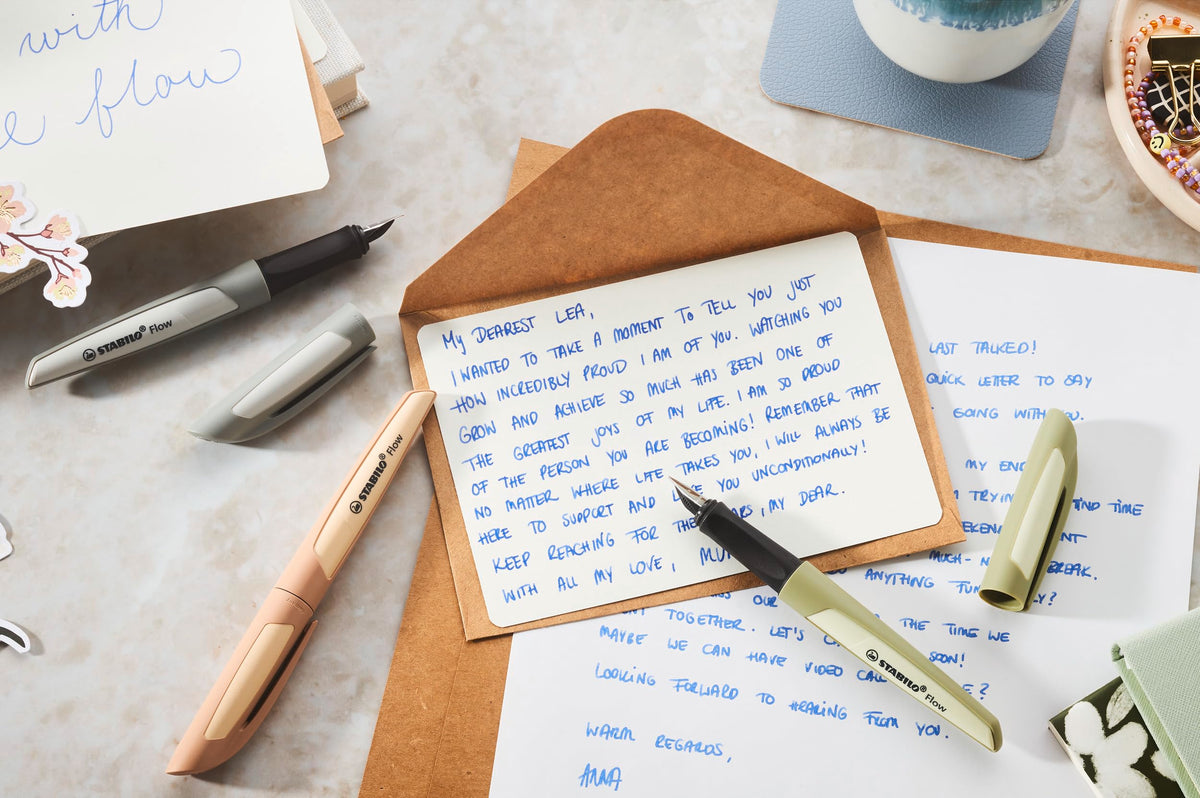 with
e flow
STABILO® Flow
STABILO® Flow
MY DEAREST LEA,
I WANTED TO TAKE A MOMENT TO TELL YOU JUST
HOW INCREDIBLY PROUD I AM OF YOU. WATCHING YOU
GROW AND ACHIEVE SO MUCH HAS BEEN ONE OF
THE GREATEST JOYS OF MY LIFE. I AM SO PROUD
OF THE PERSON YOU ARE BECOMING! REMEMBER THAT
NO MATTER WHERE LIFE TAKES YOU, I WILL ALWAYS BE
HERE TO SUPPORT AND YOU UNCONDITIONALLY!
KEEP REACHING FOR THE , MY DEAR.
WITH ALL MY LOVE,
LAST TALKED!
QUICK LETTER TO SAY
GOING WITH
MY
TIME
MUCH- BREAK.
ANYTHING
OUR
TOGETHER. LET'S THE TIME WE
MAYBE WE CAN HAVE VIDEO SOON!
LOOKING FORWARD TO HEARING FROM YOU.
WARM REGARDS,
ANNA
STABILO® Flow